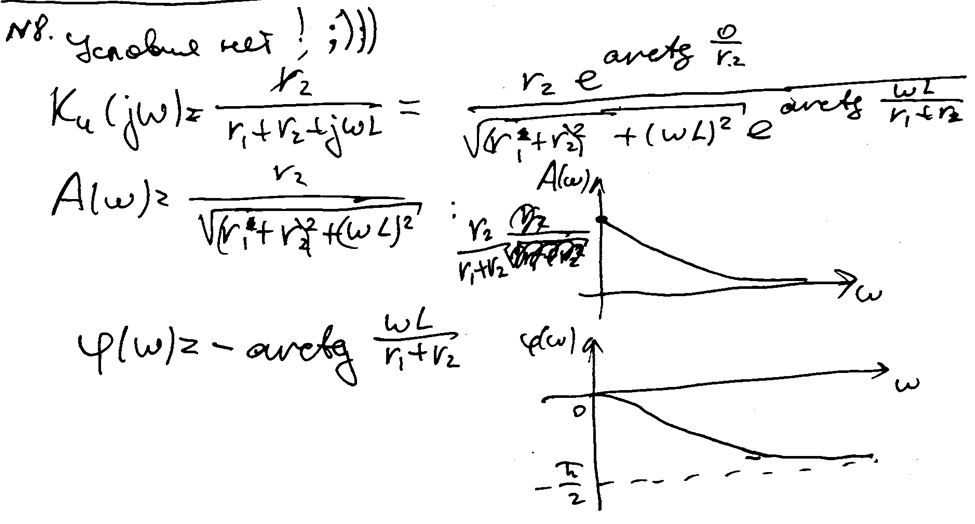 №8. Условие нет! ;)))
K_u(jω) = r₂ / (r₁ + r₂ + jωL) = r₂ e^{arctg 0/r₂} / (√((r₁ + r₂)² + (ωL)²) e^{arctg ωL/(r₁+r₂)})
A(ω) = r₂ / √((r₁ + r₂)² + (ωL)²) :
r₂ / (r₁+r₂)
A(ω)
ω
φ(ω) = - arctg ωL / (r₁+r₂)
φ(ω)
0
ω
-π/2